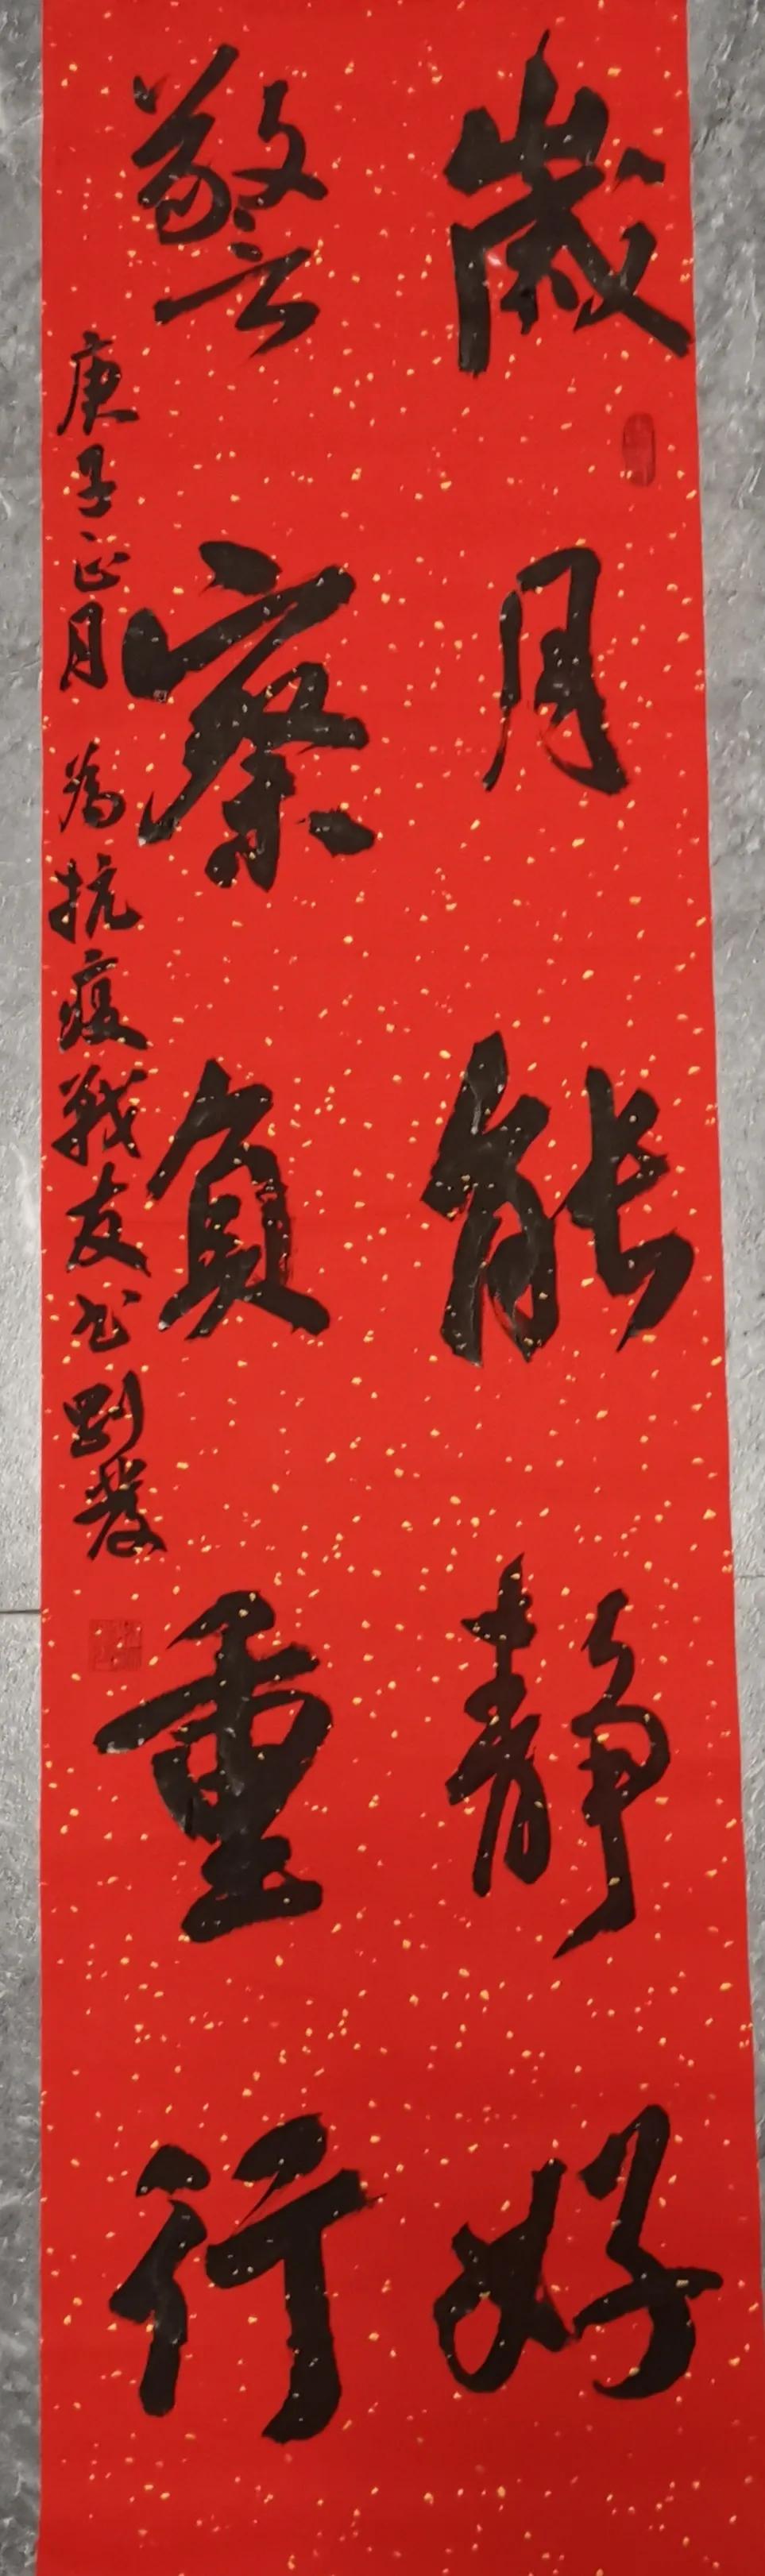 歲月能靜好
警察負重行
庚子正月為抗疫戰友書劉發